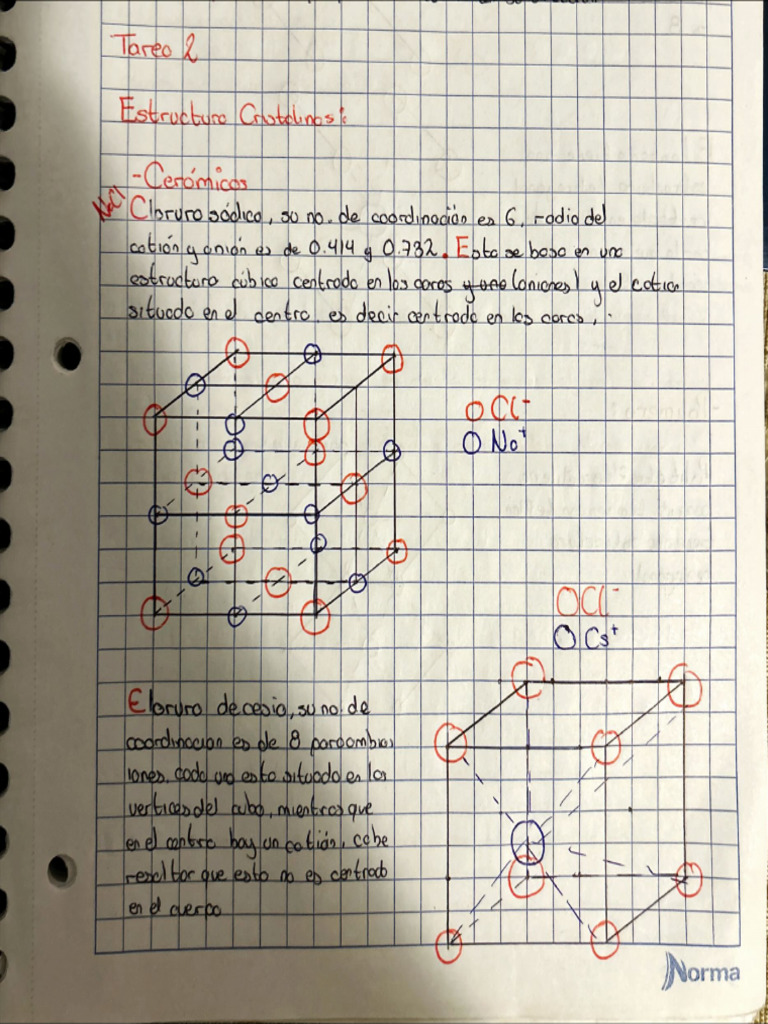 Tarea 2
Estructura Cristalinas:
- Cerámicos
NaCl
Cloruro sódico, su no. de coordinación es 6, radio del
catión y anión es de 0.414 y 0.732. Esta se basa en una
estructura cúbica centrada en las caras y una (aniones) y el cation
situado en el centro, es decir centrado en las caras,.
O Cl⁻
O Na⁺
O Cl⁻
O Cs⁺
Cloruro de cesio, su no. de
coordinacion es de 8 para ambos
iones, cada uno esta situado en los
vertices del cubo, mientras que
en el centro hay un catión, cabe
resaltar que esto no es centrado
en el cuerpo
Norma